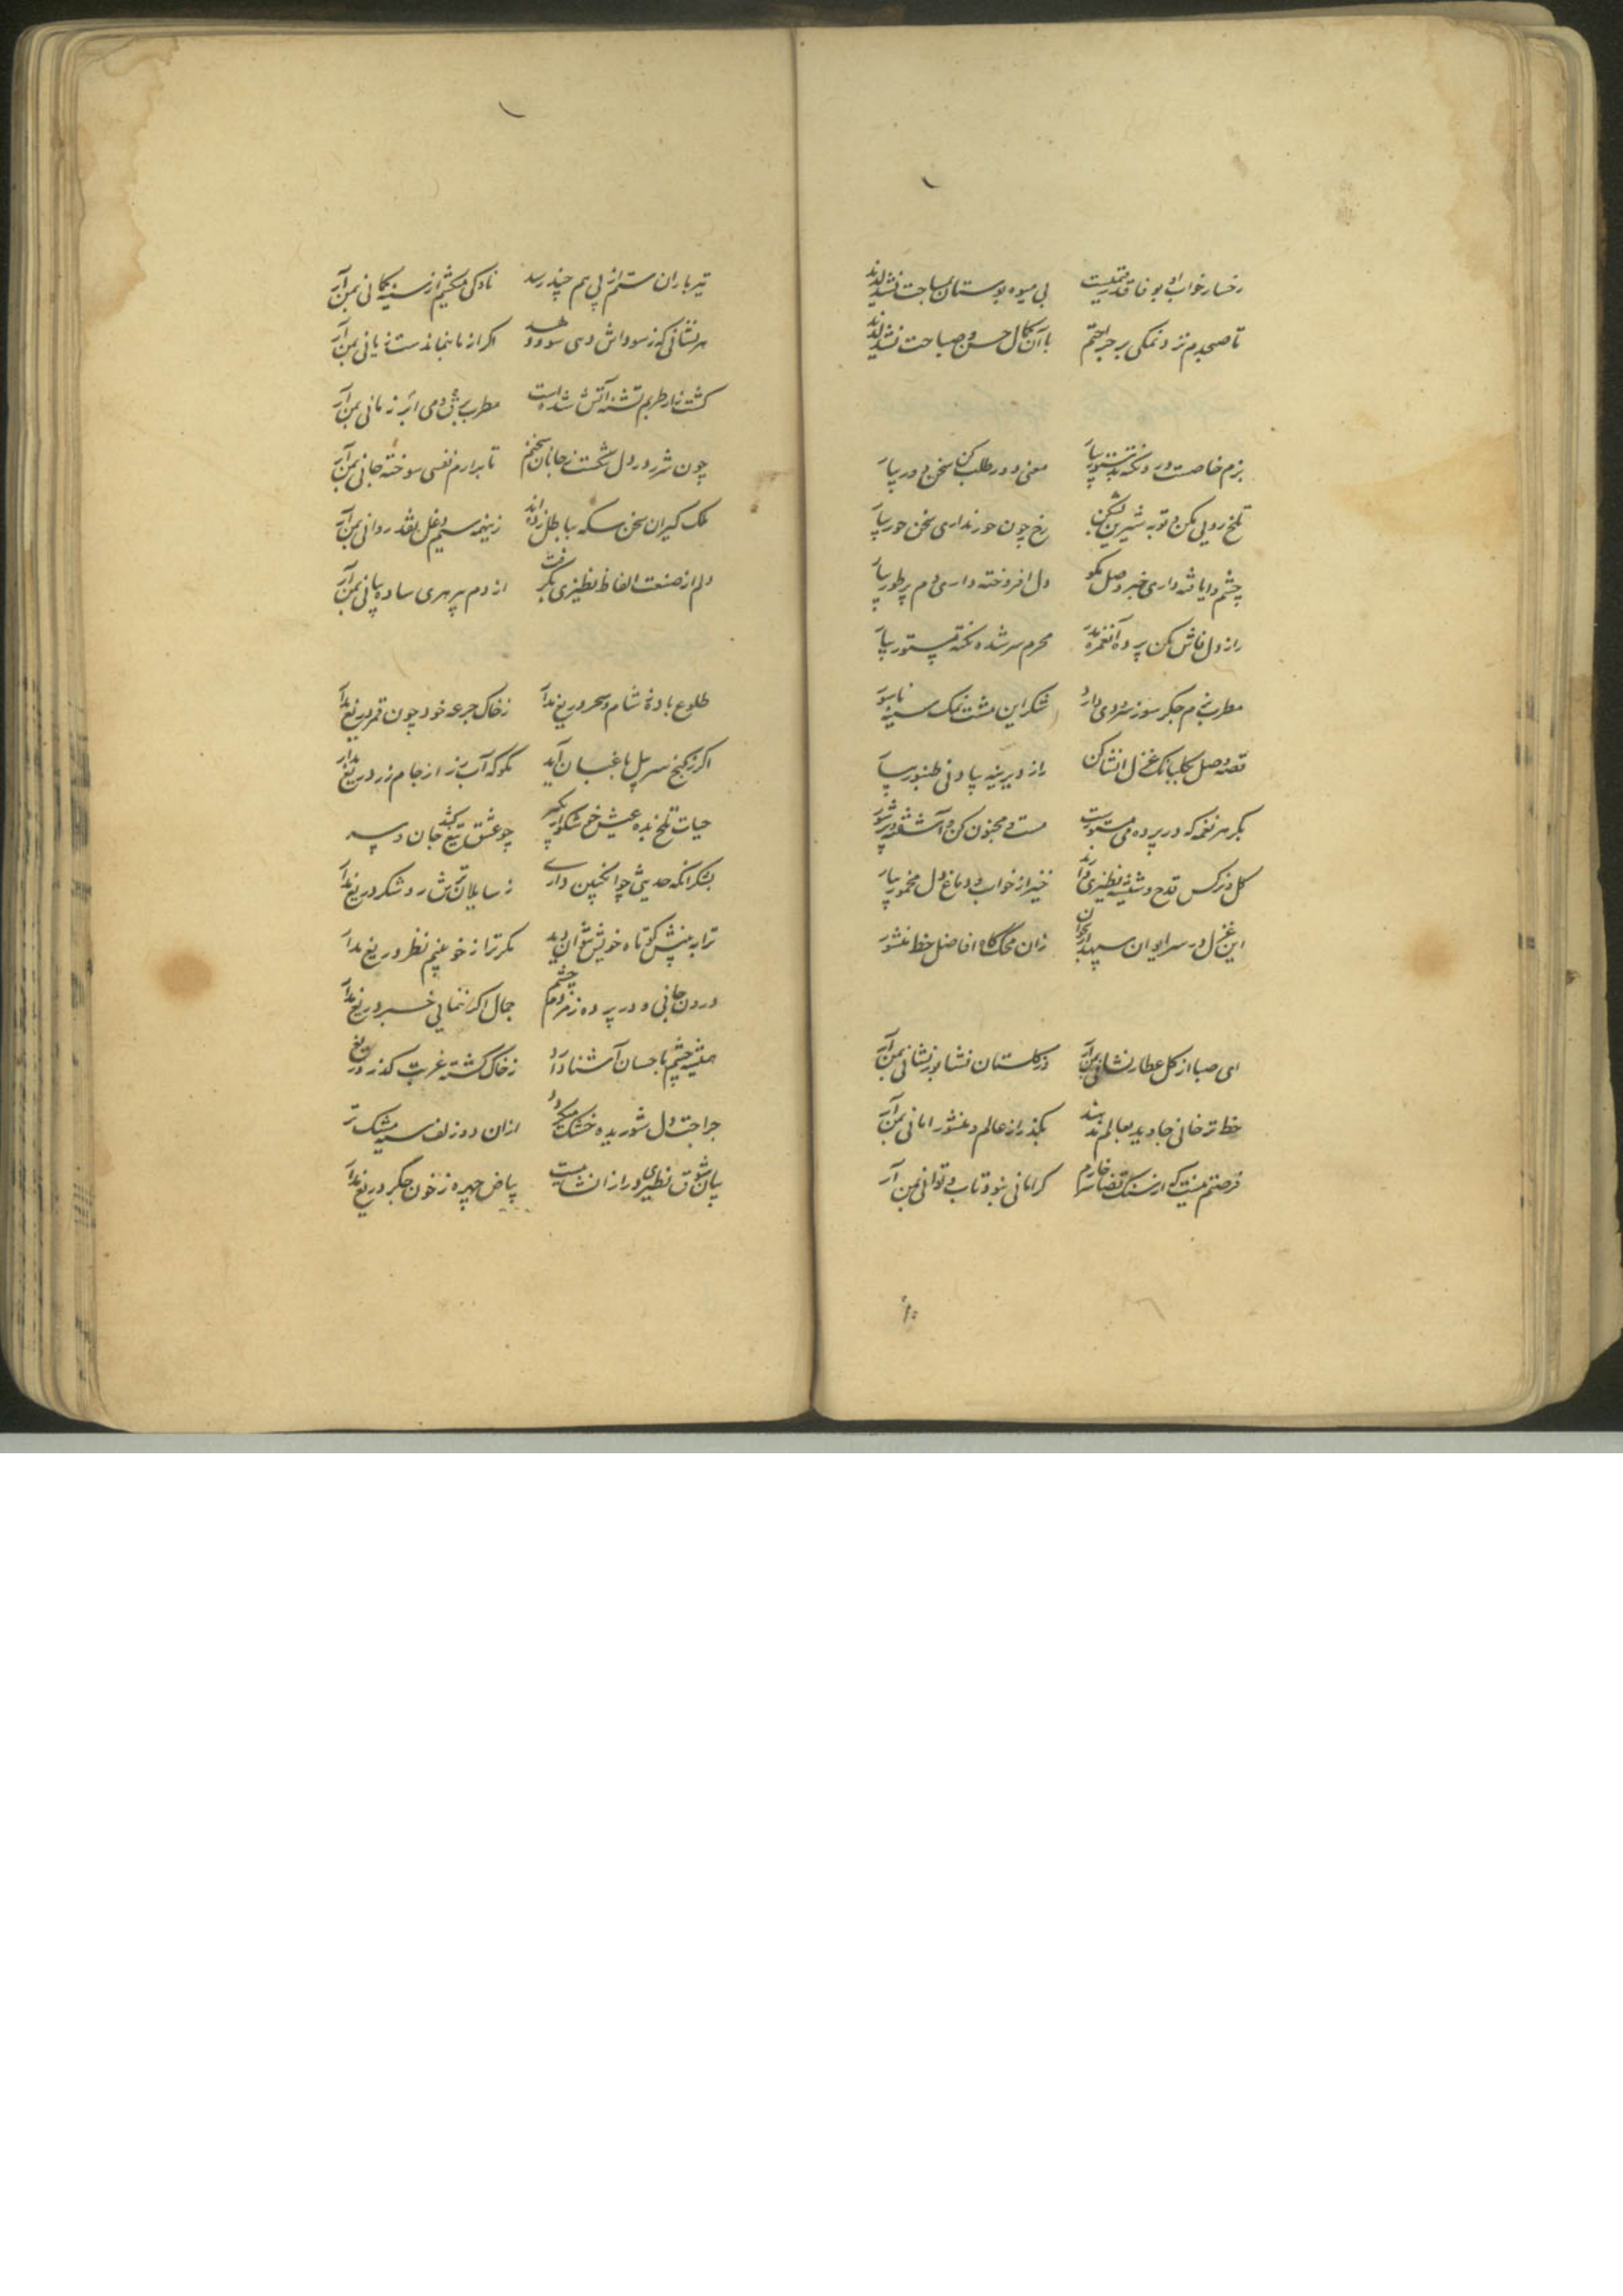 رخسار خواب او بوفا
بی میوه بوستان
تا صبحدم نزد نمکی بر جراحتم
با آن کمال حسن و صباحت
بزم خاصست در
معنی دور طلب کن سخن دور بیار
تلخ رویی مکن و توبه شیرین بشکن
رخ چون حور نداری سخن حور بیار
چشم وایافته داری خبر وصل بگو
دل افروخته داری دم پر طور بیار
راز دل فاش مکن پرده
محرم سر شده نکته مستور بیار
مطرب بزم جگر سوز سرودی دارد
شکر این مشت نمک سینه ناسور
قصه وصل بگلبانک غزل انشا کن
راز دیرینه بیاد نی طنبور بیار
بکر هر نغمه که در پرده
مست و مجنون کن و آشفته و پر شور
گل و نرگس قدح و شیشه نظیری دارند
خیز از خواب و دماغ دل مخمور بیار
این غزل در سر ایوان سپهدار بخوان
زان محک گاه افاضل خط منشور
ای صبا از گل عطار نشانی بمن آر
وز گلستان نشابور نشانی بمن آر
خط ترخانی جاوید بعالم ندهند
بگذر از عالم و منشور امانی بمن آر
فرصتم نیست که از سنگ قضا سر خارم
گر امانی نبود تاب و توانی بمن آر
تیر باران ستم از پی هم چند رسد
ناوکی میکشم از سینه کمانی بمن آر
هر نشانی که ز سوداش دهی سود دهد
اگر از ما بنماندست زیانی بمن آر
کشت زار طربم تشنه آتش شده است
مطرب برق دمی ابر زبانی بمن آر
چون شرر در دل سختست ز جانان سخنم
تا برآرم نفسی سوخته جانی بمن آر
ملک گیران سخن سکه بباطل زده اند
زینهمه سیم دغل نقد روانی بمن آر
دلم از صنعت الفاظ نظیری بگرفت
از دم پیر هری ساده بیانی بمن آر
طلوع باده شام و سحر دریغ مدار
ز خاک جرعه خود چون قمر دریغ مدار
اگر ز گنج سر پل باغبان آید
بگو که آب رز از جام زر دریغ مدار
حیات تلخ بده عیش خوشگوار بگیر
چو عشق تیغ کشد جان و سر
بشکر آنکه حدیثی چو انگبین داری
ز سایلان ترش رو شکر دریغ مدار
ترا به بینش کوتاه خویش نتوان دید
مگر ترا ز خود بینم نظر دریغ مدار
درون جانی و در پرده ز مردم چشم
جمال اگر ننمایی خبر دریغ مدار
همیشه چشم باحسان آشنا دارد
ز خاک گشته غربت گذر دریغ
جراحت دل شوریده خشک میگردد
ازان دو زلف سیه مشک تر
بیان شوق نظیری دراز انشاییست
بیاض چهره ز خون جگر دریغ مدار